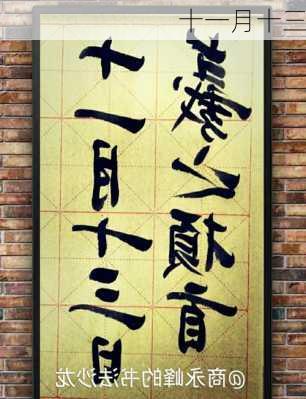 十一月十三
十一月十三日
羲之頓首
@商永峰的书法沙龙